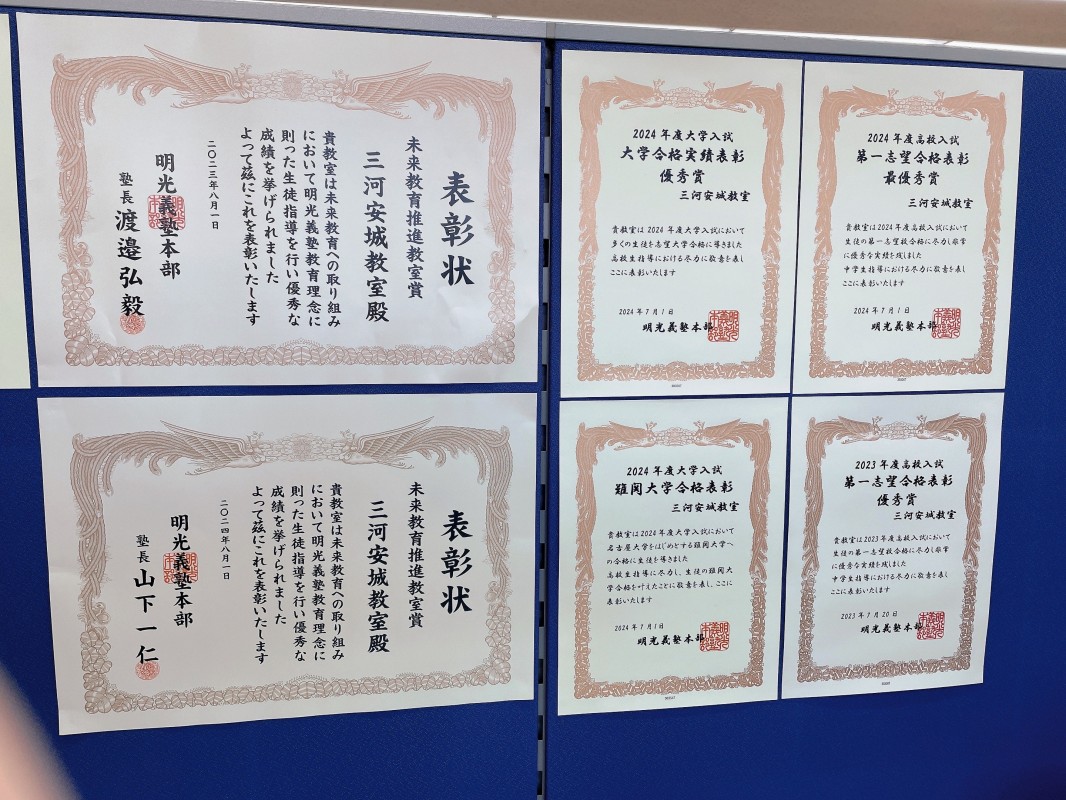 表彰状
未来教育推進教室賞
三河安城教室殿
貴教室は未来教育への取り組み
において明光義塾教育理念に
則った生徒指導を行い優秀な
成績を挙げられました
よって茲にこれを表彰いたします
二〇二三年八月一日
明光義塾本部
塾長 渡邉弘毅
表彰状
未来教育推進教室賞
三河安城教室殿
貴教室は未来教育への取り組み
において明光義塾教育理念に
則った生徒指導を行い優秀な
成績を挙げられました
よって茲にこれを表彰いたします
二〇二四年八月一日
明光義塾本部
塾長 山下一仁
2024年度大学入試
大学合格実績表彰
優秀賞
三河安城教室
貴教室は2024年度大学入試において
多くの生徒を志望大学合格に導きました
高校生指導における尽力に敬意を表し
ここに表彰いたします
2024年7月1日
明光義塾本部
2024年度高校入試
第一志望合格表彰
最優秀賞
三河安城教室
貴教室は2024年度高校入試において
生徒の第一志望校合格に尽力し非常
に優秀な実績を残しました
中学生指導における尽力に敬意を表し
ここに表彰いたします
2024年7月1日
明光義塾本部
2024年度大学入試
難関大学合格表彰
三河安城教室
貴教室は2024年度大学入試において
名古屋大学をはじめとする難関大学へ
の合格に生徒を導きました
高校生指導に尽力し、生徒の難関大
学合格を叶えたことに敬意を表し、ここに
表彰いたします
2024年7月1日
明光義塾本部
2023年度高校入試
第一志望合格表彰
優秀賞
三河安城教室
貴教室は2023年度高校入試において
生徒の第一志望校合格に尽力し非常
に優秀な実績を納めました
中学生指導における尽力に敬意を表し
ここに表彰いたします
2023年7月20日
明光義塾本部